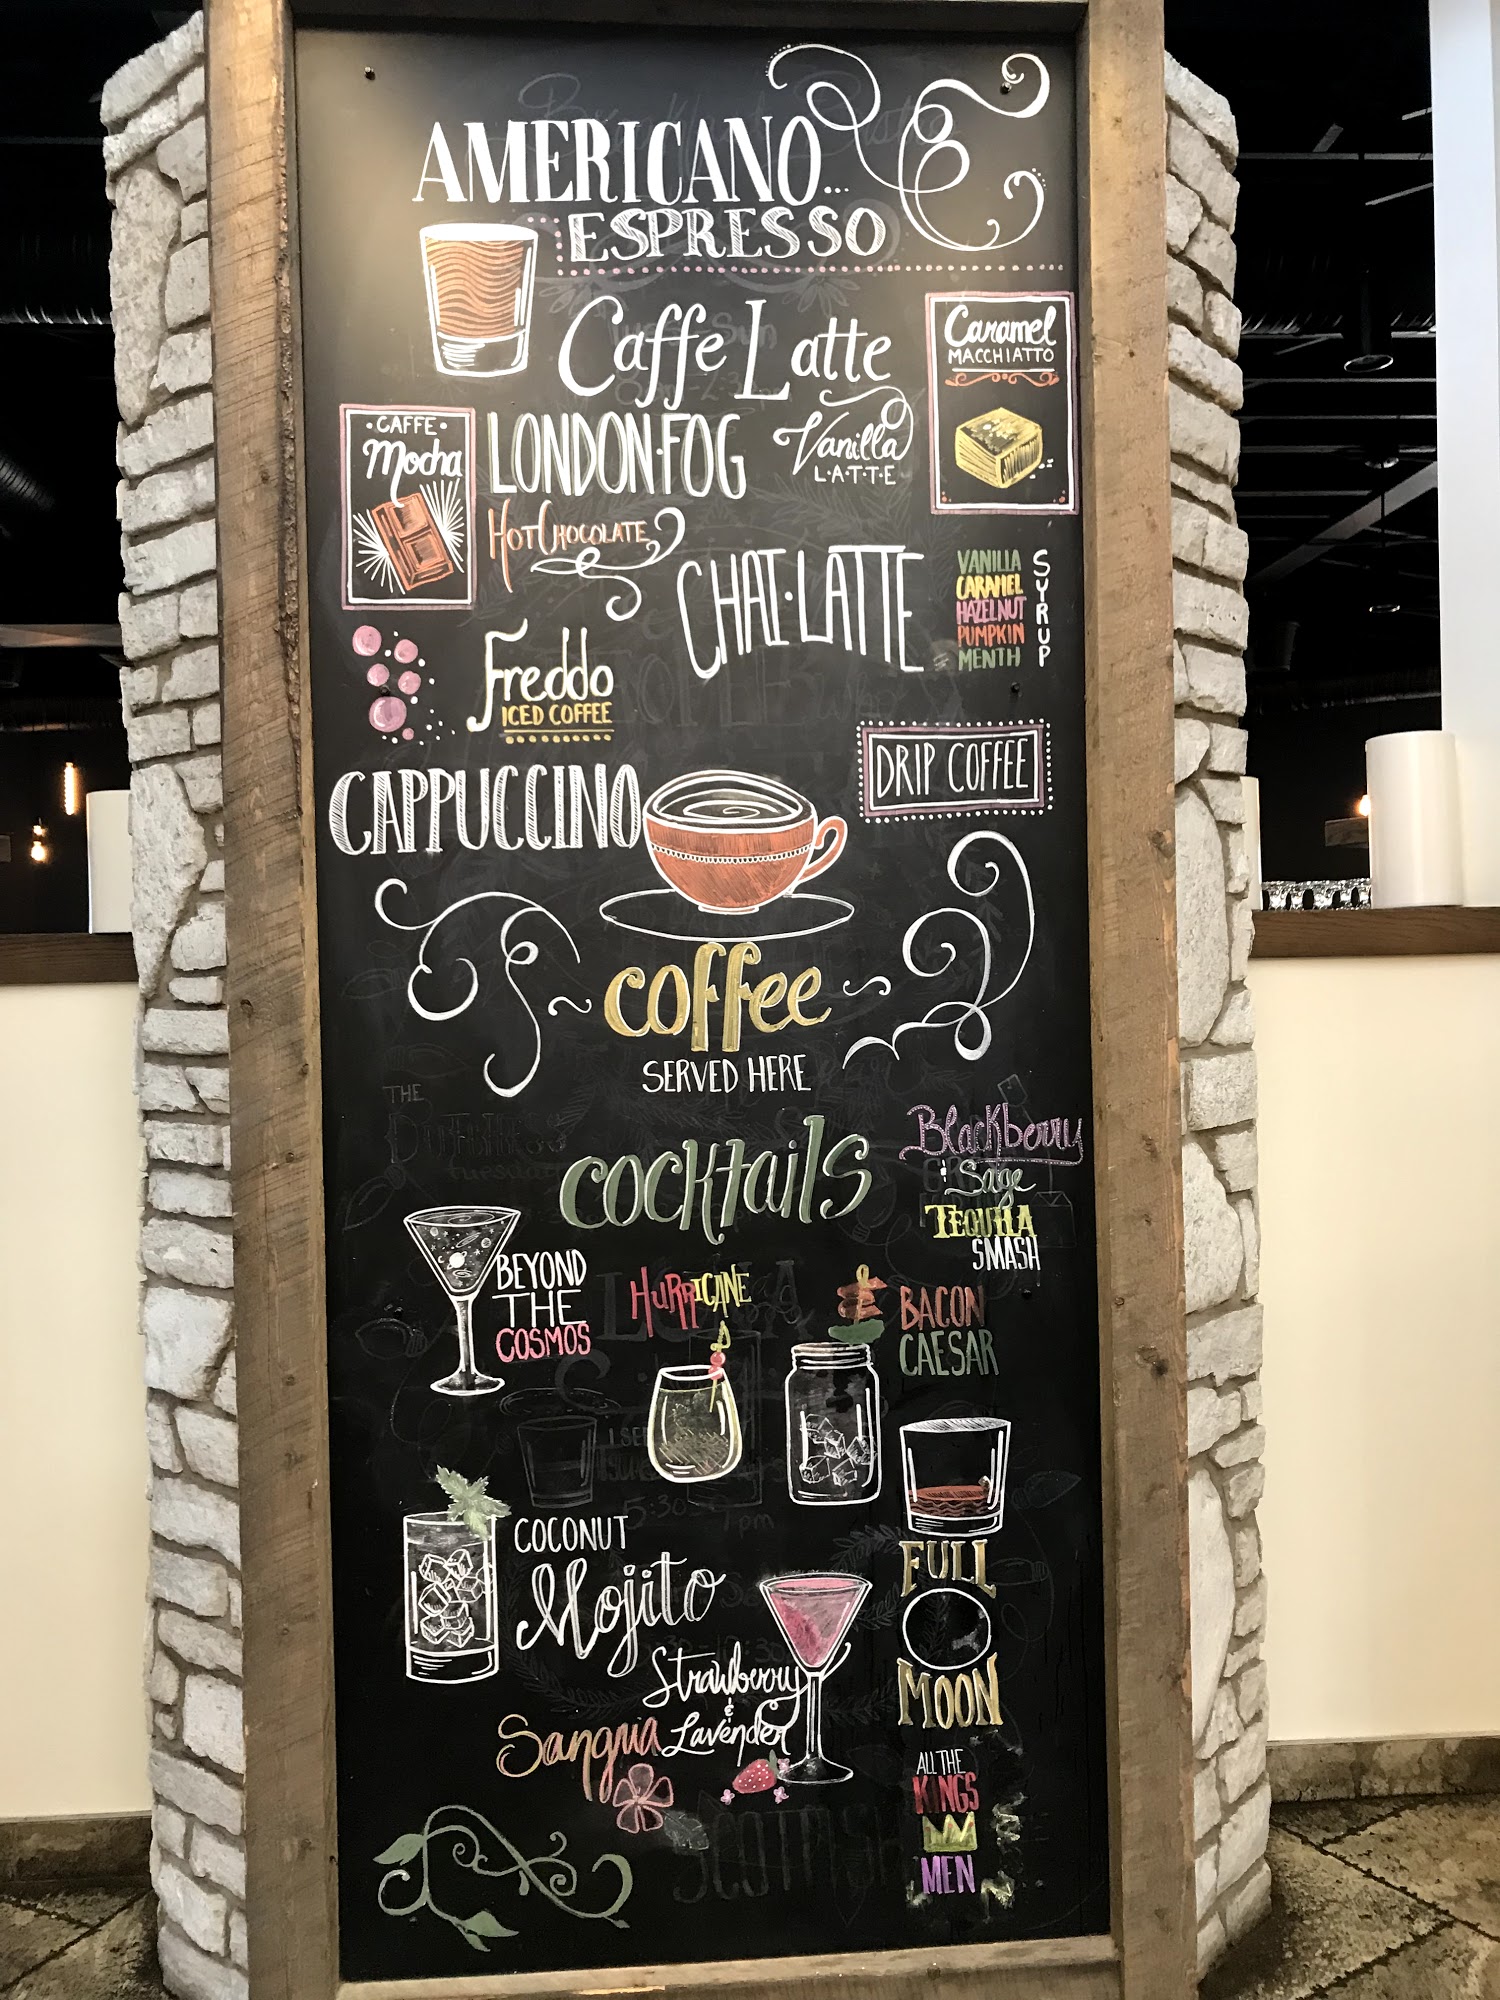 AMERICANO...
ESPRESSO
Caffe Latte
Caramel
MACCHIATTO
·CAFFE·
Mocha
LONDON·FOG
Vanilla
L·A·T·T·E
HOT CHOCOLATE
CHAI·LATTE
VANILLA
CARAMEL
HAZELNUT
PUMPKIN
MENTH
SYRUP
Freddo
ICED COFFEE
DRIP COFFEE
CAPPUCCINO
coffee
SERVED HERE
cocktails
Blackberry
& Sage
TEQUILA
SMASH
BEYOND
THE
COSMOS
HURRICANE
BACON
CAESAR
COCONUT
Mojito
FULL
MOON
Strawberry
&
Lavender
Sangria
ALL THE
KINGS
MEN